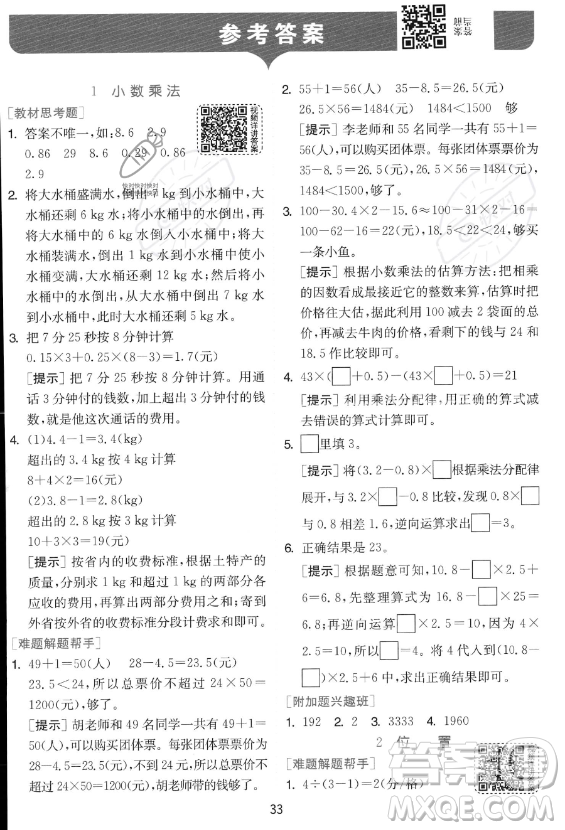 参考答案
答案
当前
1 小数乘法
[教材思考题]
视频详讲答案
1. 答案不唯一,如:8.6 2.9
0.86 29 8.6 0.29 0.86
2.9
2. 将大水桶盛满水,倒出7 kg到小水桶中,大
水桶还剩6 kg水;将小水桶中的水倒出,从
大水桶中将6 kg水倒入小水桶中;大水
桶装满水,倒出1 kg水到小水桶中使小水
桶变满,大水桶还剩12 kg水;然后将小水
桶中的水倒出,从大水桶中倒出7 kg水
到小水桶中,此时大水桶还剩5 kg水
3. 把7分25秒按8分钟计算
0.15×3+0.25×(8-3)=1.7(元)
[提示] 把7分25秒按8分钟计算。用通
话3分钟付的钱数,加上后5分钟付的钱
数,就是他这次通话的费用。
4. (1)4.4-1=3.4(kg)
超出的3.4 kg按4 kg计算
8+4×2=16(元)
(2)3.8-1=2.8(kg)
超出的2.8 kg按3 kg计算
10+3×3=19(元)
[提示] 按省内的收费标准,根据土特产的
质量,分别计算出1 kg和超出部分各
应收的费用,再算出两部分费用之和;寄到
外省按省外的收费标准分段计费求和即可。
[难题解题帮手]
1. 49+1=50(人) 28-4.5=23.5(元)
23.5<24,所以总票价不超过24×50=
1200(元),够了。
[提示] 胡老师和49名同学一共有49+
1=50(人),可以购买团体票。每张票价是
28-4.5=23.5(元),所以总票价不超过
24×50=1200(元)。胡老师带的钱够了。
2. 55+1=56(人) 35-8.5=26.5(元)
26.5×56=1484(元) 够
[提示] 李老师和55名同学一共55+1=
56(人),可以购买团体票。每张团体票
35-8.5=26.5(元),一共需要26.5×56=
1484(元),1484<1500,够。
3. 100-30.4×2-15.6≈100-31×2-16=
100-62-16=22(元),18.5<22,够买
一条小鱼。
[提示] 根据小数乘法的估算方法,把相乘
的因数看成最接近它的整数来算。根据估
价的情况,可以用100减去2袋面的总
价,再减去牛肉的价格,看剩下的钱与24和
18.5作比较即可。
4. 43×(□+0.5)-(43×□+0.5)=21
[提示] 利用乘法分配律,用正确的算式减
去错误的算式计算即可。
5. □里填3。
[提示] 将(3.2-0.8)×□根据乘法分配律
展开,与3.2-0.8×□比较,发现0.8×□
与0.8相差1.6,逆向运算求出□即可。
6. 正确结果是23。
[提示] 根据题意可知,10.8-□×2.5+
6=6.8,先整理算式为10.8-□×2.5=
0.8;再逆向运算,□×2.5=10,□=10÷
2.5=4,所以□里是4。将4代入到(10.8-
□)×2.5+6中,求出得数即可。
[附加题兴趣班]
1. 192 2. 2 3. 3333 4. 1960
2 位置
[难题解题帮手]
1. 4÷(3-1)=2(分/格)
33
答案圈
MXQE.COM